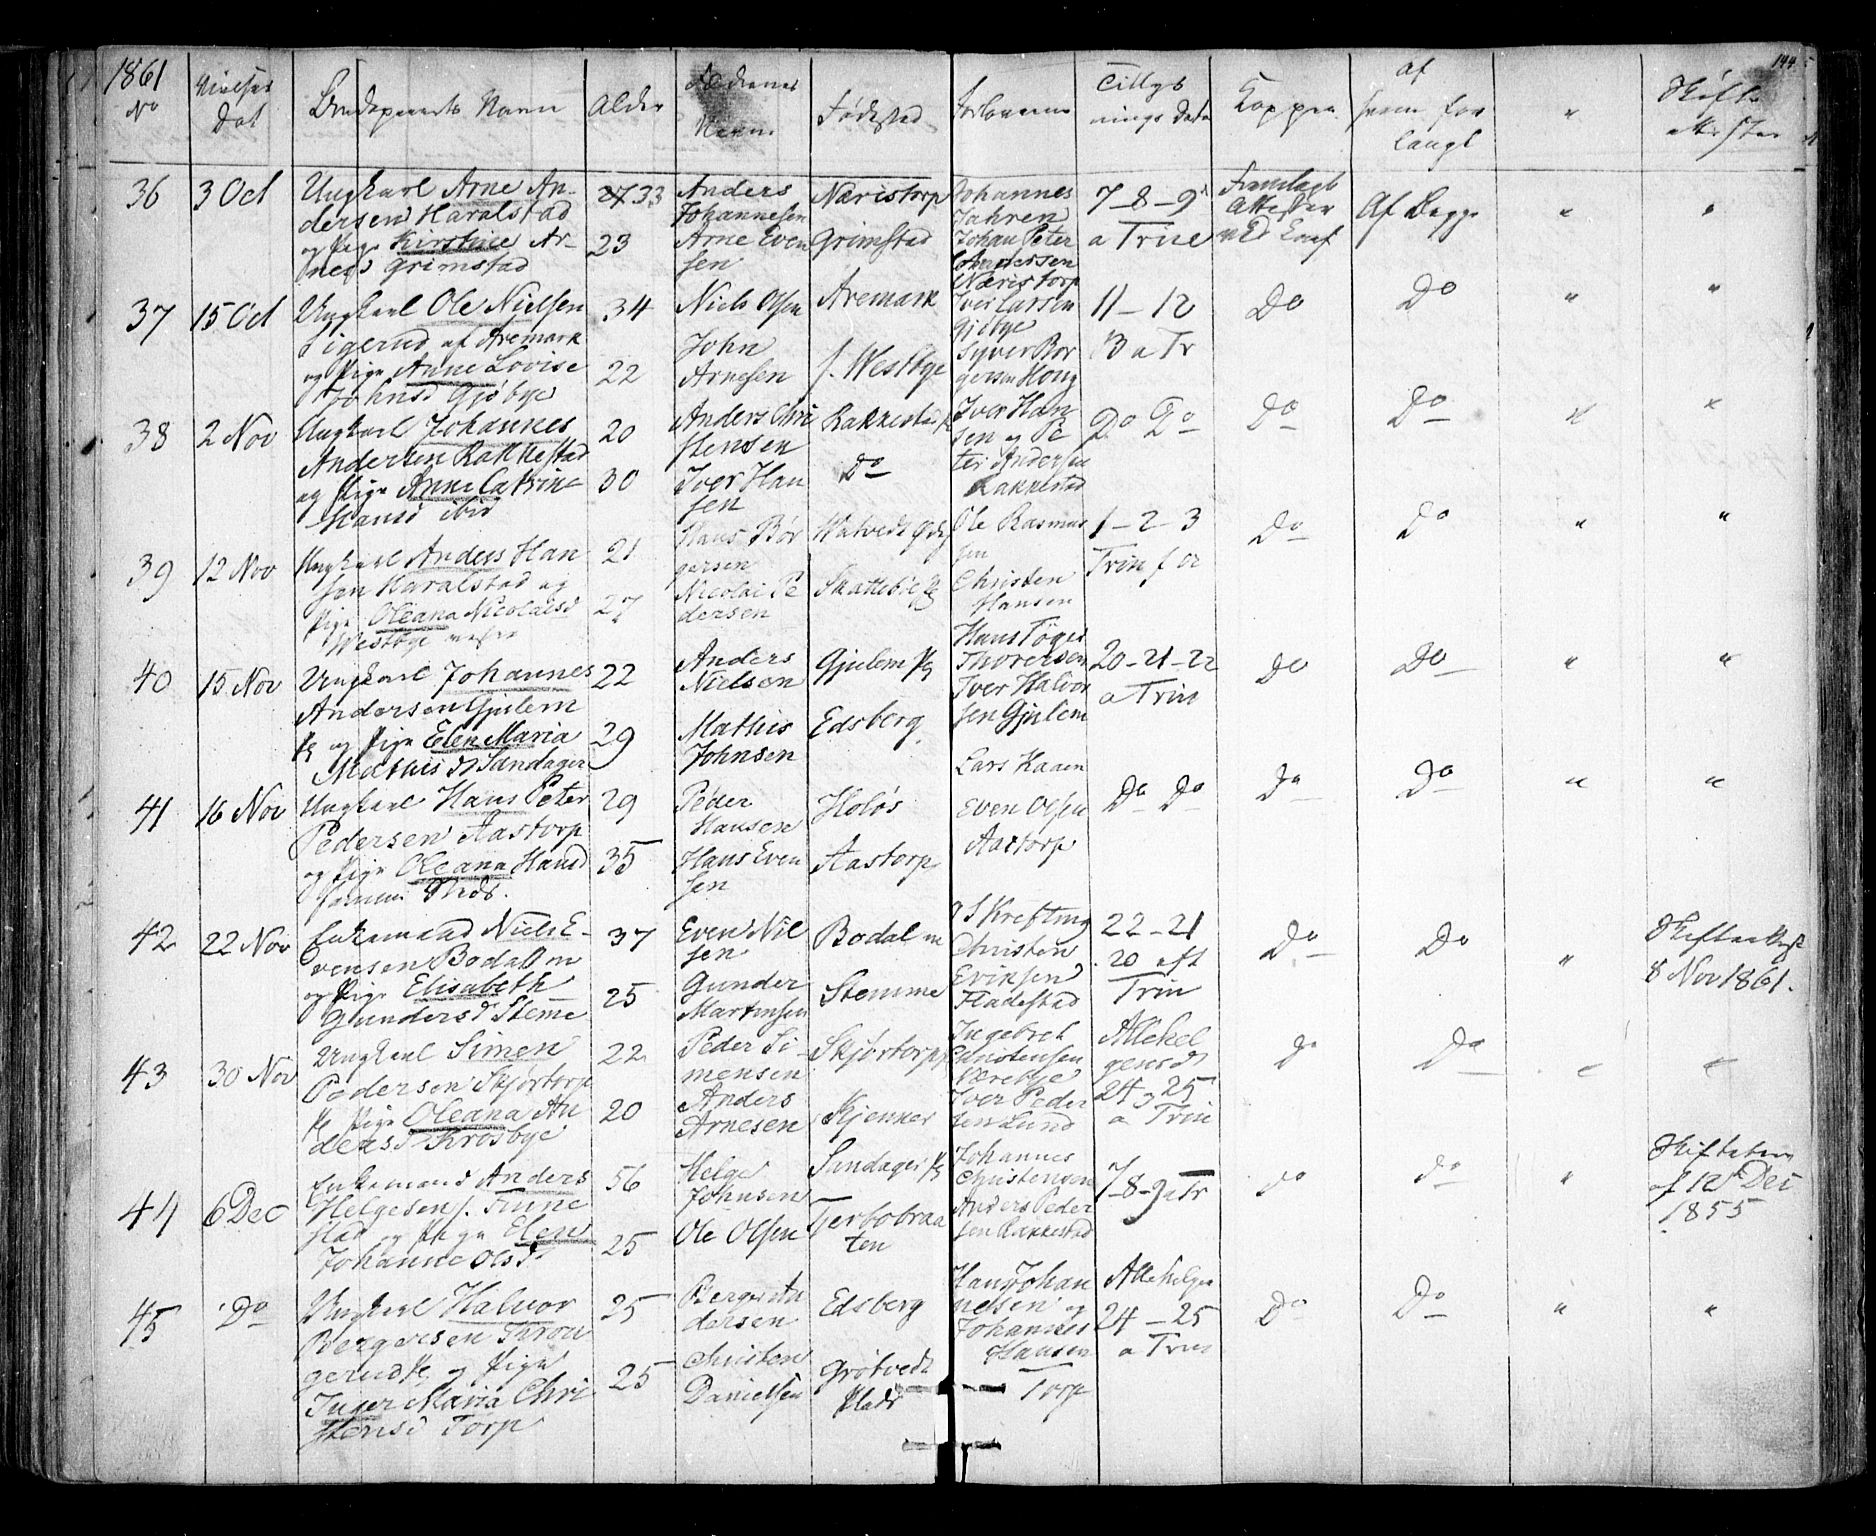 1861
144
No
Vielses Dat
Brudeparrets Navn
Alder
Fædrenes Navn
Fødested
Forloverne
Tillysnings Dato
Koppe
af hvem forlangt
"
Skifte Attester
36
3 Oct
Ungkarl Arne An-
dersen Haralstad
og Pige Kirstine Ar-
nesd Grimstad
33
23
Anders
Johannesen
Arne Even
sen
Næristorp
Grimstad
Johannes
Jahren
Johan Peter
Andersen
Næristorp
7-8-9
a Trine
Fremlagt
Attester
Af Begge
"
"
37
15 Oct
Ungkarl Ole Nielsen
Sigerud af Aremark
og Pige Anne Lovise
Johnsd Gjøbye
34
22
Niels Olsen
John
Arnesen
Aremark
f. Westbye
Iver Larsen
Gjøbye
Syver Bor
gersen Houg
11-12
13 a Tr
Do
Do
"
"
38
2 Nov
Ungkarl Johannes
Andersen Rakkestad
og Pige Anne Catrine
Hansd ibid
20
30
Anders Chri
stensen
Iver Han
sen
Rakkestad
Do
Iver Han
sen og Pe
ter Andersen
Rakkestad
Do Do
Do
Do
"
"
39
12 Nov
Ungkarl Anders Han
sen Haralstad og
Pige Oleana Nicolaisd
Westbye
21
27
Hans Bør
gersen
Nicolai Pe
dersen
Watvedt
Skattebøl
Ole Rasmus
sen
Christen
Hansen
1-2-3
Trin
Do
Do
"
"
40
15 Nov
Ungkarl Johannes
Andersen Gjulem
og Pige Elen Maria
Mathisd Sandager
22
29
Anders
Nielsen
Mathis
Johnsen
Gjulem
Edsberg
Hans Tøger
Thoresen
Iver Halvor
sen Gjulem
20-21-22
a Trin
Do
Do
"
"
41
16 Nov
Ungkarl Hans Peter
Pedersen Aastorp
og Pige Oleana Hansd
samme Sted.
29
35
Peder
Hansen
Hans Even
sen
Holøs
Aastorp
Lars Kaaen
Even Olsen
Aastorp
Do Do
Do
Do
"
"
42
22 Nov
Enkemand Niels E-
vensen Bodal m
og Pige Elisabeth
Gundersd Steme
37
25
Even Nil
sen
Gunder
Martinsen
Bodal m
Stemme
S Krefting
Christen
Eriksen
Fladestad
22-21
20 eft
Trin
Do
Do
"
Skifteattest
8 Nov 1861.
43
30 Nov
Ungkarl Simen
Pedersen Skjørtorp
Pige Oleana An
dersd Krosbye
22
20
Peder Si-
mensen
Anders
Arnesen
Skjørtorp
Kjenner
Ingebret
Christensen
Værebye
Iver Peder
sen Lund
Allehel
gensd
24 25
a Trin
Do
Do
"
"
44
6 Dec
Enkemand Anders
Helgesen f. Finne
stad og Pige Elen
Johanne Olsd
56
25
Helge
Johnsen
Ole Olsen
Sandager
Tjerbobraa
ten
Johannes
Christensen
Anders Peder
sen Rakkestad
7-8-9 a Tr
Do
Do
"
Skiftebrev
af 12 Dec
1855
45
Do
Ungkarl Halvor
Bergersen Tron
gerud og Pige
Inger Maria Chri
stensd Torp
25
25
Berger An
dersen
Christen
Danielsen
Edsberg
Grøtvedt
Plads
Hans Johan
nesen og
Johannes
Hansen
Torp
Allehelgen
24-25
a Trin
Do
Do
"
"